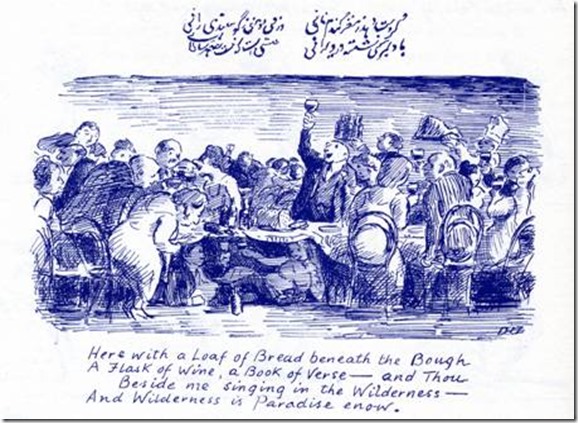 گر دست دهد ز مغز گندم نانی وز می دو منی ز گوسفندی رانی
با دلبرکی نشسته در ویرانی
Here with a Loaf of Bread beneath the Bough
A Flask of Wine, a Book of Verse — and Thou
Beside me singing in the Wilderness —
And Wilderness is Paradise enow.